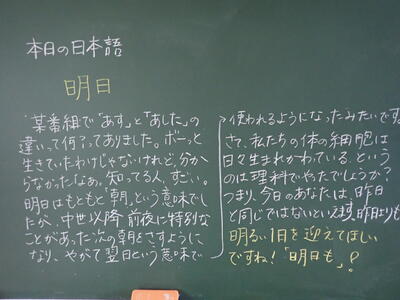 本日の日本語
明日
某番組で「あす」と「あした」の
違いって何?ってありました。ボーっと
生きていたわけじゃないけれど、分から
なかったなぁ。知ってる人、すごい。
明日はもともと「朝」という意味でし
たが、中世以降前後に特別な
ことがあった次の朝をさすように
なり、やがて翌日という意味で
使われるようになったみたいです。
さて、私たちの体の細胞は
日々生まれかわっている、という
のは理科でやったでしょうか?
つまり、今日のあなたは、昨日
と同じではないといえます。昨日よりも
明るい1日を迎えてほしい
ですね!「明日も」?